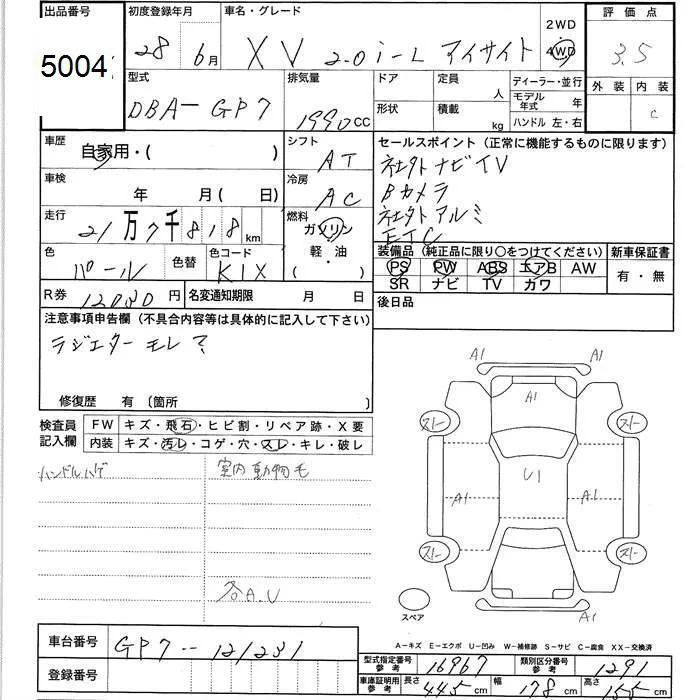 出品番号 初度登録年月 車名・グレード 評価点
5004 28 6月 XV 2.0i-L アイサイト 2WD 4WD 3.5
型式 排気量 ドア 定員 人 ディーラー・並行 外装 内装
DBA-GP7 1990CC 形状 積載 kg モデル年式 年 C
ハンドル 左・右
車歴 自家用・( ) シフト AT セールスポイント(正常に機能するものに限ります)
社外ナビTV
車検 年 月( 日) 冷房 AC Bカメラ
社外アルミ
走行 21万7千818km 燃料 ガソリン 軽・油 ( ) ETC
色 パール 色替 色コード K1X 装備品(純正品に限り○をつけてください) 新車保証書
PS PW ABS エアB AW 有・無
SR ナビ TV カワ
R券 12080円 名変通知期限 月 日 後日品
注意事項申告欄(不具合内容等は具体的に記入して下さい)
ラジエターモレ?
修復歴 有〔箇所 〕
検査員記入欄 FW キズ・飛石・ヒビ割・リペア跡・X要
内装 キズ・汚レ・コゲ・穴・スレ・キレ・破レ
ハンドルハゲ 室内動物毛
各A.U
A1 A1
A1
スレ スレ
U1
A1 A1
スレ スレ
スペア A1
A-キズ E-エクボ U-凹み W-補修跡 S-サビ C-腐食 XX-交換済
車台番号 GP7-121231 型式指定番号 参考 16967 類別区分番号 参考 1291
登録番号 車庫証明用 参考 長さ 445cm 幅 178cm 高さ 155cm